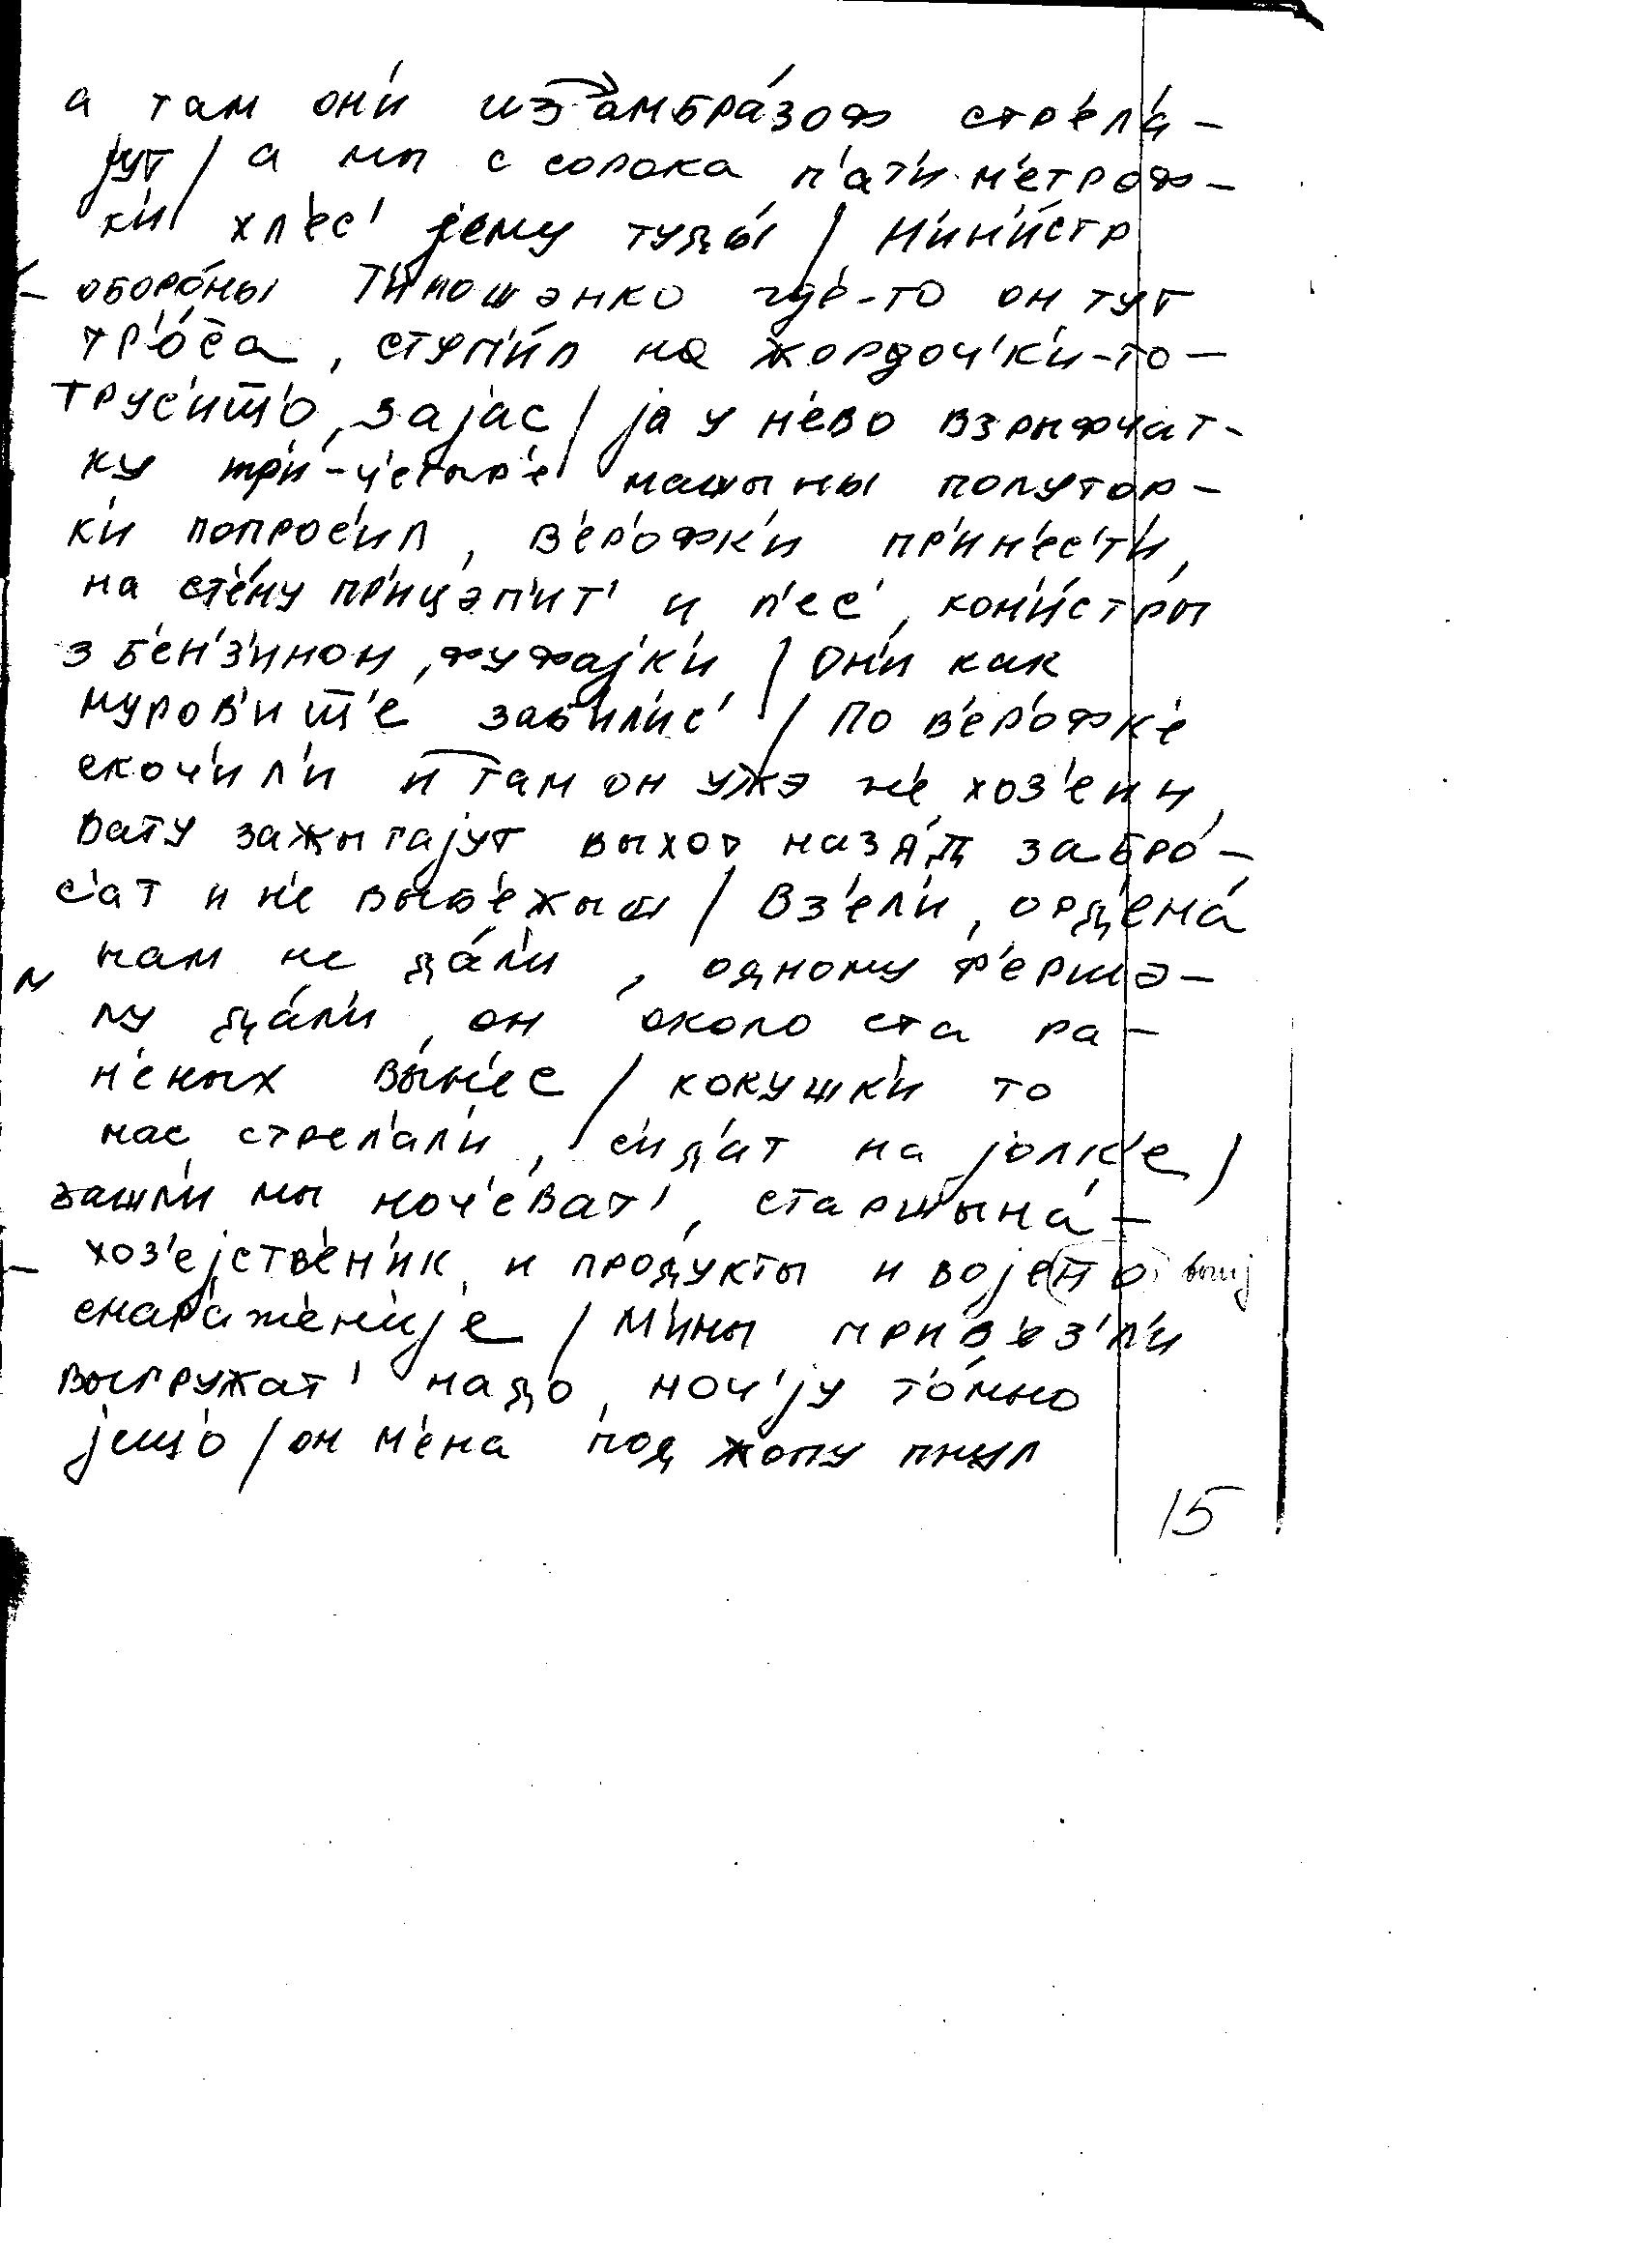 а там он'и́ из амбра́зоф стр'ел'а́-
јут / а мы с сорока п'ат'и м'етроф-
к'и хл'ес' јему туды́ / М'ин'и́стр
оборо́ны Т'имошэнко гд'е-то он тут
тр'о́с'а, ступ'и́л на жордоч'к'и-то-
трус'ит'о, зајас / ја у н'ево взрыфчат-
ку тр'и-ч'етыр'е машыны полутор-
к'и попрос'ил, в'ер'офк'и пр'ин'ес'т'и,
на ст'ену пр'ицэп'ит' и п'ес', кон'и́стры
з б'ен'з'ином, фуфајк'и / он'и как
муров'ишш'е заб'ил'ис' / По в'ер'офк'е
скоч'ил'и и там он ужэ н'е хоз'еин,
вату зажыгајут выхот наза́д забро́-
с'ат и н'е выб'ежыш / Вз'ел'и, орд'ена́
нам не да́л'и, одному ф'ершэ-
лу да́л'и, он около ста ра-
н'еных вы́н'ес / кокушк'и то
нас стрел'ал'и, с'ид'ат на јолк'е /
зашл'и мы ноч'еват', старшына́-
хоз'ејств'ен'ик, и проду́кты и војено
снар'ажен'ије / М'ины пр'ив'ез'л'и
выгружат' надо, ноч'ју т'о́мно
јещ'о / он м'ена под жопу пнул
15